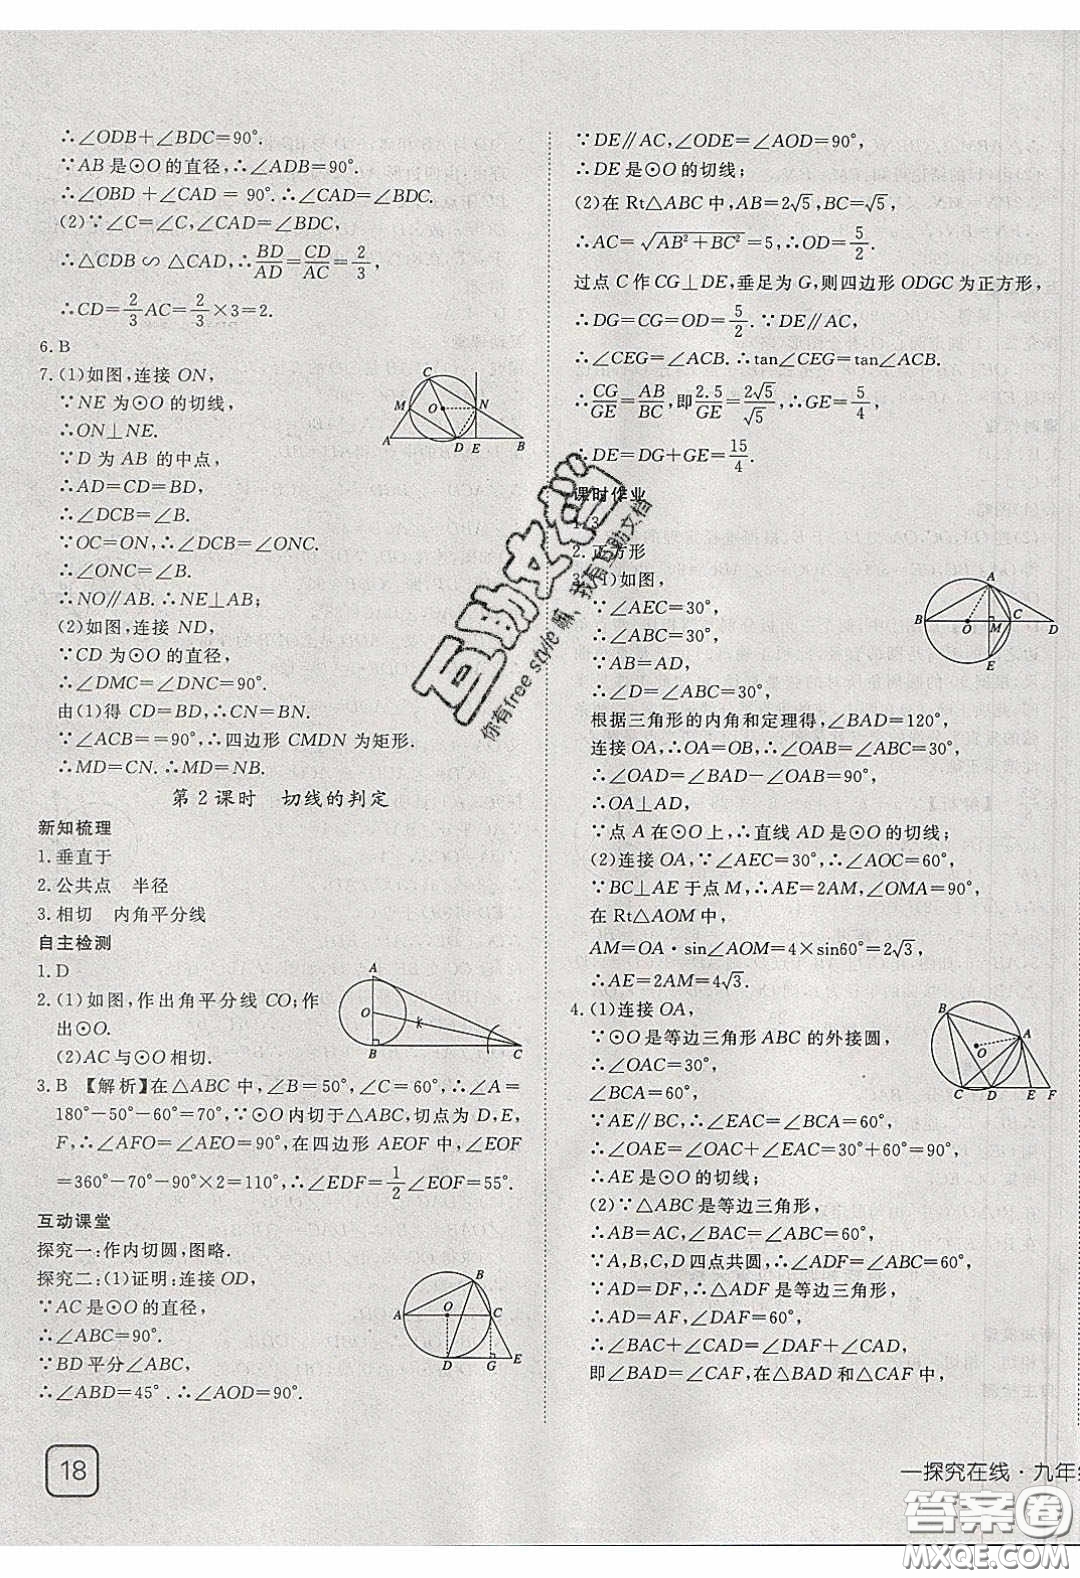 ∴∠ODB+∠BDC=90°.
∵AB是⊙O的直径,∴∠ADB=90°.
∴∠OBD+∠CAD=90°.∴∠CAD=∠BDC.
(2)∵∠C=∠C,∠CAD=∠BDC,
∴△CDB∽△CAD,∴BD/AD=CD/AC=2/3,
∴CD=2/3AC=2/3×3=2.
6.B
7.(1)如图,连接ON,
∵NE为⊙O的切线,
∴ON⊥NE.
∵D为AB的中点,
∴AD=CD=BD,
∴∠DCB=∠B.
∵OC=ON,∴∠DCB=∠ONC.
∴∠ONC=∠B.
∴NO∥AB.∴NE⊥AB;
(2)如图,连接ND,
∵CD为⊙O的直径,
∴∠DMC=∠DNC=90°.
由(1)得CD=BD,∴CN=BN.
∵∠ACB==90°,∴四边形CMDN为矩形.
∴MD=CN.∴MD=NB.
第2课时 切线的判定
新知梳理
1.垂直于
2.公共点 半径
3.相切 内角平分线
自主检测
1.D
2.(1)如图,作出角平分线CO;作
出⊙O.
(2)AC与⊙O相切.
3.B 【解析】在△ABC中,∠B=50°,∠C=60°,∴∠A=
180°-50°-60°=70°,∵⊙O内切于△ABC,切点为D,E,
F,∴∠AFO=∠AEO=90°,在四边形AEOF中,∠EOF
=360°-70°-90°×2=110°,∴∠EDF=1/2∠EOF=55°.
互动课堂
探究一:作内切圆,图略.
探究二:(1)证明:连接OD,
∵AC是⊙O的直径,
∴∠ABC=90°.
∵BD平分∠ABC,
∴∠ABD=45°.∴∠AOD=90°.
18
∵DE∥AC,∠ODE=∠AOD=90°.
∴DE是⊙O的切线;
(2)在Rt△ABC中,AB=2√5,BC=√5,
∴AC=√(AB²+BC²)=5,∴OD=5/2.
过点C作CG⊥DE,垂足为G,则四边形ODGC为正方形,
∴DG=CG=OD=5/2.∵DE∥AC,
∴∠CEG=∠ACB.∴tan∠CEG=tan∠ACB.
∴CG/GE=AB/BC,即2.5/GE=2√5/√5,∴GE=5/4,
∴DE=DG+GE=15/4.
课时作业
2.正方形
3.(1)如图,
∵∠AEC=30°,
∴∠ABC=30°,
∵AB=AD,
∴∠D=∠ABC=30°,
根据三角形的内角和定理得,∠BAD=120°,
连接OA,∴OA=OB,∴∠OAB=∠ABC=30°,
∴∠OAD=∠BAD-∠OAB=90°,
∴OA⊥AD,
∵点A在⊙O上,∴直线AD是⊙O的切线;
(2)连接OA,∵∠AEC=30°,∴∠AOC=60°,
∵BC⊥AE于点M,∴AE=2AM,∠OMA=90°,
在Rt△AOM中,
AM=OA·sin∠AOM=4×sin60°=2√3,
∴AE=2AM=4√3.
4.(1)连接OA,
∵⊙O是等边三角形ABC的外接圆,
∴∠OAC=30°,
∠BCA=60°,
∵AE∥BC,∴∠EAC=∠BCA=60°,
∴∠OAE=∠OAC+∠EAC=30°+60°=90°,
∴AE是⊙O的切线;
(2)∵△ABC是等边三角形,
∴AB=AC,∠BAC=∠ABC=60°,
∵A,B,C,D四点共圆,∴∠ADF=∠ABC=60°,
∵AD=DF,∴△ADF是等边三角形,
∴AD=AF,∠DAF=60°,
∴∠BAC+∠CAD=∠DAF+∠CAD,
即∠BAD=∠CAF,在△BAD和△CAF中,
一探究在线·九年
互助文档
你有free style嘛、我有互助文档
答案圈
MXQE.COM